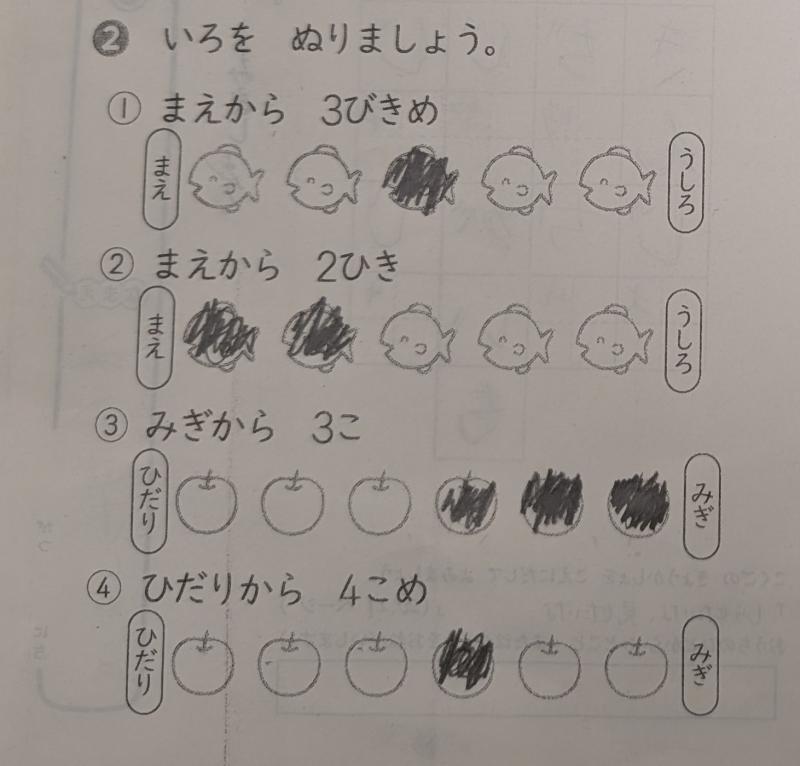 ❷ いろを ぬりましょう。
① まえから 3びきめ
まえ うしろ
② まえから 2ひき
まえ うしろ
③ みぎから 3こ
ひだり みぎ
④ ひだりから 4こめ
ひだり みぎ